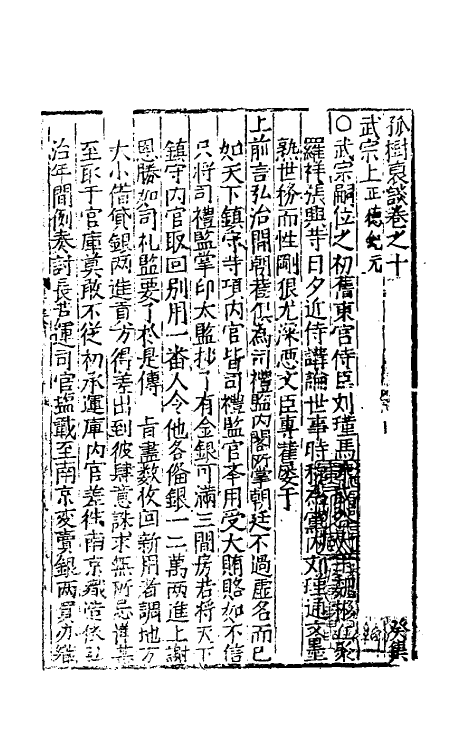 孤樹裒談卷之十
癸集
武宗上正德紀元
○武宗嗣位之初舊東宮侍臣刘瑾馬
羅祥張興等日夕近侍講論世事時
刘瑾通文墨
熟世務而性剛狠尤深惡文臣專舊屡于
上前言弘治間朝權俱為司禮監內閣所掌朝廷不過虚名而已
如天下鎮守等項內官皆司禮監官夲用受大賄賂如不信
只將司禮監掌印太監抄了有金銀可滿三間房若将天下
鎮守內官取回別用一番人令他各俻銀一二萬两進上謝
恩勝如司礼監要了於是傳 旨盡數攸回新用者調地方
大小借貸銀两進貢方得差出到彼肆意誅求無所忌憚甚
至取于官庫莫敢不從初承運庫內官差徃南京織造
治年間例奏討長芦運司官塩載至南京変賣銀两買